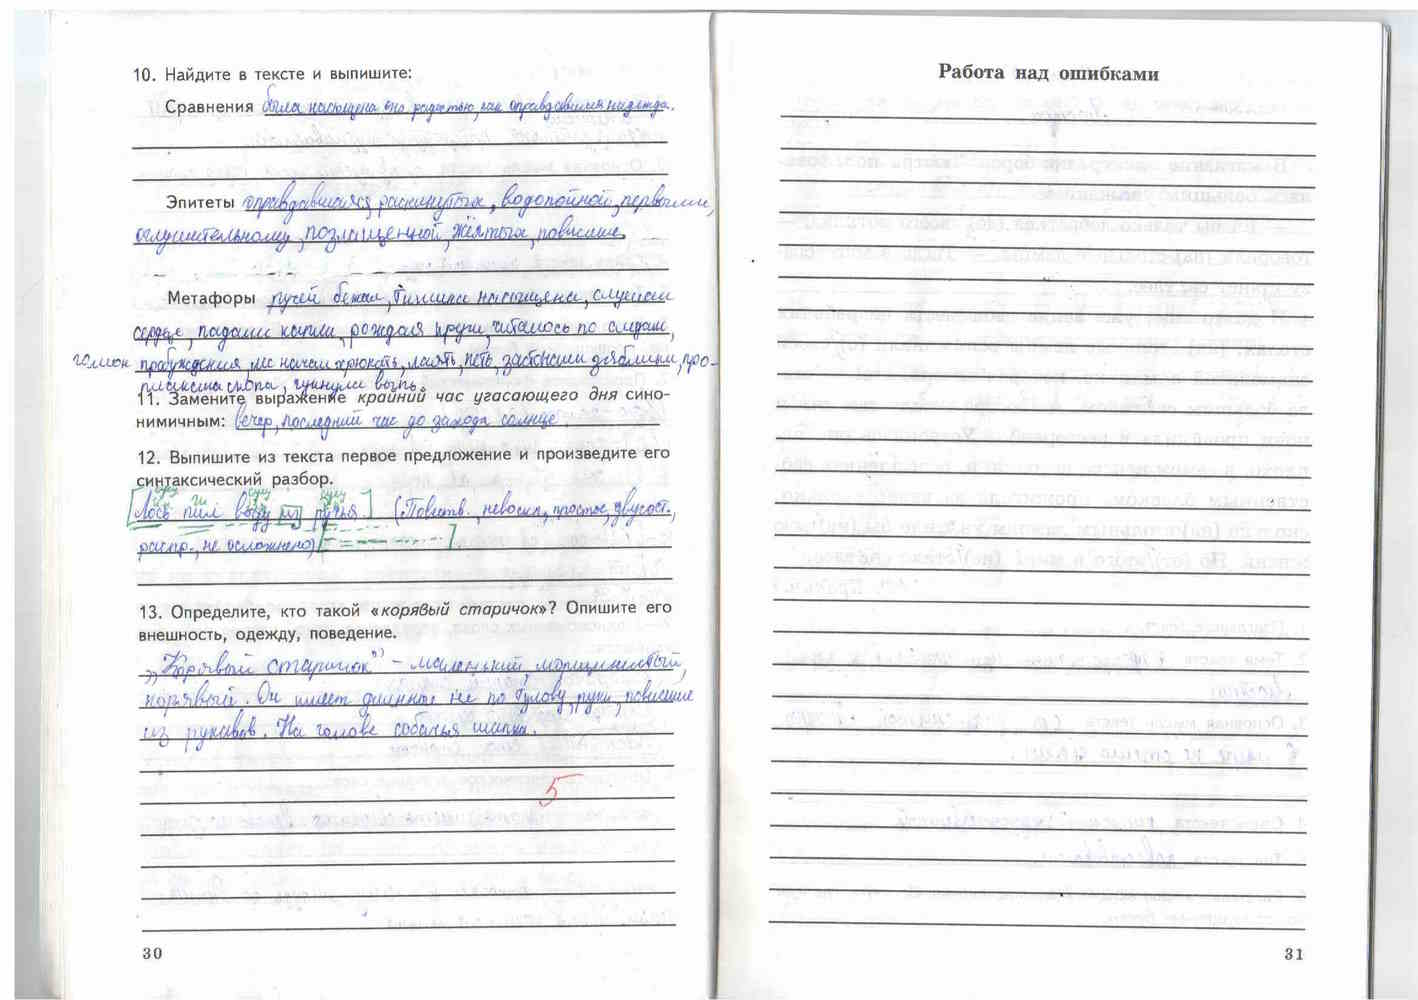 10. Найдите в тексте и выпишите:
Сравнения была насыщена его радостью, как оправдавшаяся надежда.
Эпитеты оправдавшаяся, раскинутых, водопойной, первыми,
оглушительному, позлащенной, жёлтых, повисшие
Метафоры ручей бежал, тишина насыщена, слушали
сердце, падали капли, рождая круги, читалось по следам,
пробуждения, лес начал хрюкать, лаять, петь,
гукнула выпь.
11. Замените выражение крайний час угасающего дня сино-
нимичным: вечер, последний час до захода солнце
12. Выпишите из текста первое предложение и произведите его
синтаксический разбор.
сущ гл сущ сущ
[Лось пил воду из ручья] (Повеств., невоскл, простое, двусост.,
распр., не осложнено)
13. Определите, кто такой «корявый старичок»? Опишите его
внешность, одежду, поведение.
„Корявый старичок" – маленький, морщинистый,
корявый. Он имеет длинные не по тулову, руки, повисшие
из рукавов. На голове собачья шапка.
5
30
Работа над ошибками
31